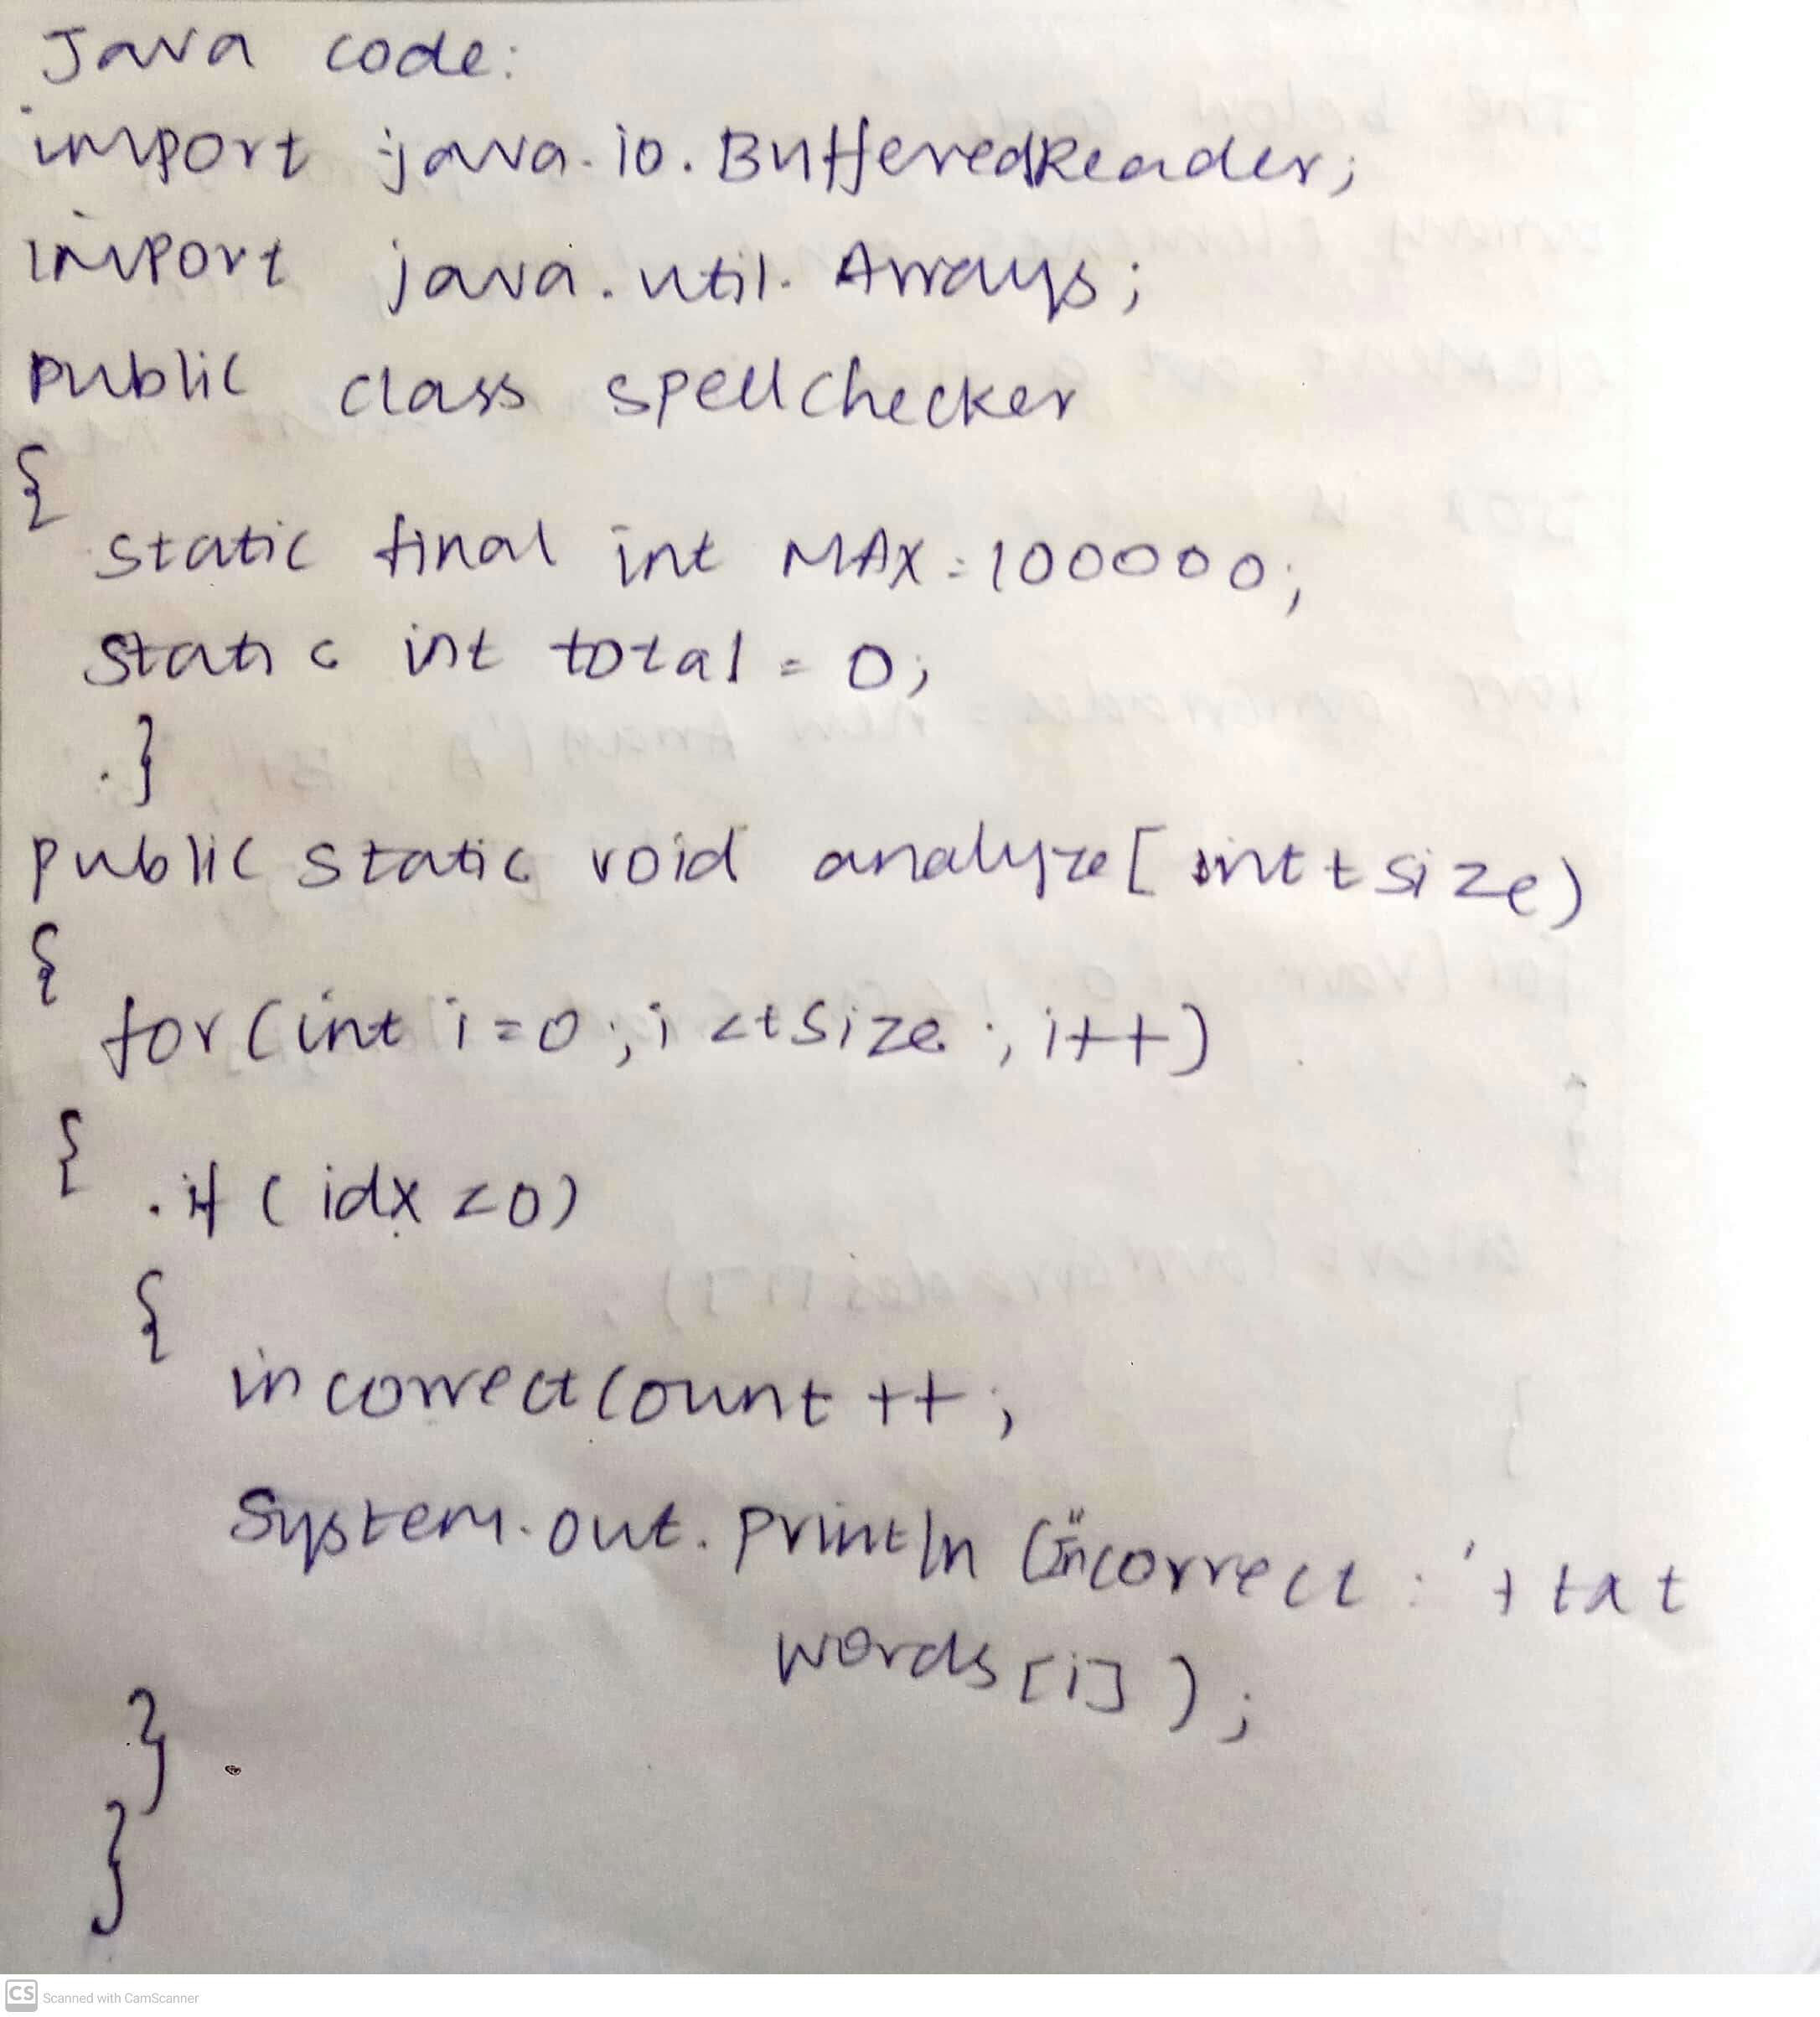 Java code:
import java.io.BufferedReader;
import java.util.Arrays;
public class spellchecker
{
static final int MAX=100000;
static int total=0;
}
public static void analyze[int tsize)
{
for(int i=0;i<tsize;i++)
{
if(idx<0)
{
incorrectCount++;
System.out.println("incorrect:'+tat
words[i]);
}
}
CS Scanned with CamScanner